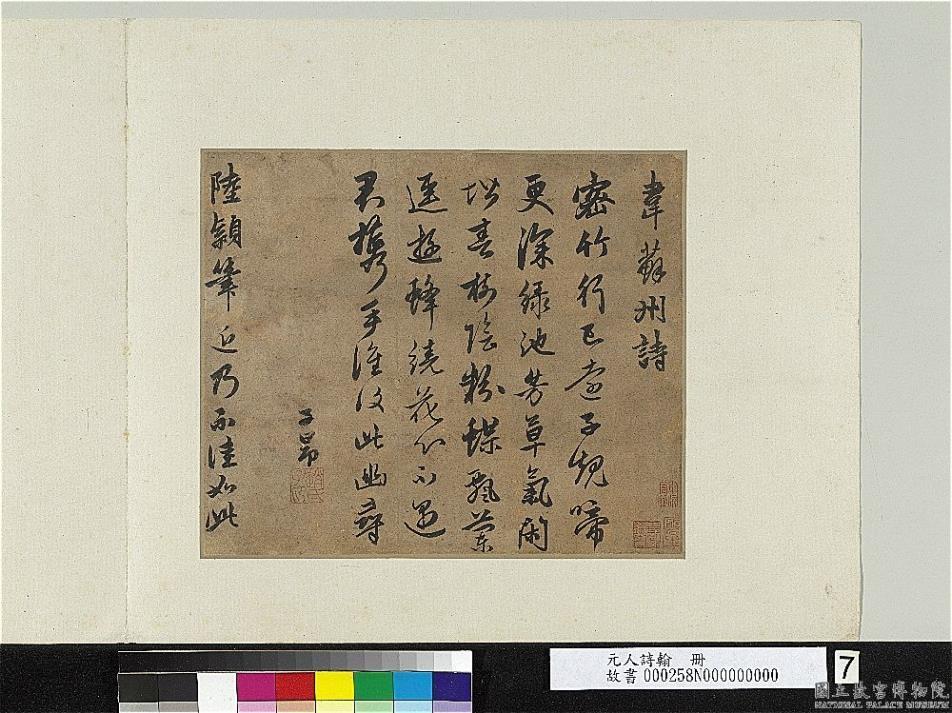 韋蘇州詩
密竹行已遠子規啼
更深綠池芳草氣閑
堦春樹陰粉蝶飄蘭
逕遊蜂繞花心不遇
君攜手誰復此幽尋
子昂
陸穎筆近乃不佳如此
元人詩翰 冊
故書000258N000000000
7
國立故宮博物院
NATIONAL PALACE MUSEUM